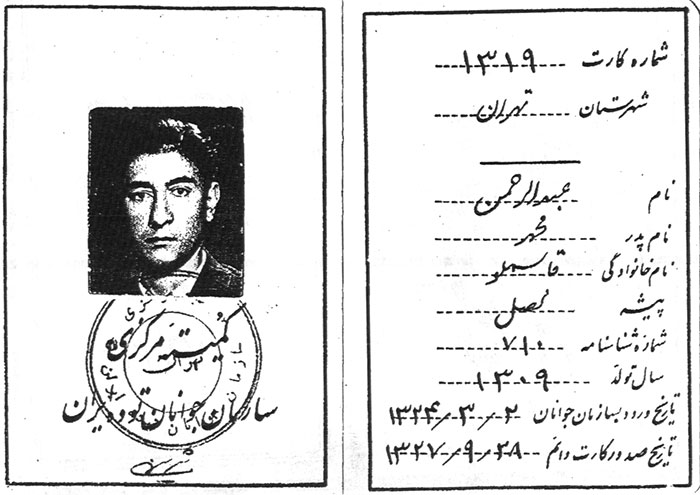 شماره کارت ۱۳۱۹
شهرستان تهران
نام عبدالرحمن
نام پدر محمد
نام خانوادگی قاسملو
پیشه محصل
شمارهٔ شناسنامه ۷۱۰
سال تولد ۱۳۰۹
تاریخ ورود بسازمان جوانان ۱۳۲۴/۳/۲
تاریخ صدور کارت دائم ۱۳۲۷/۹/۲۸
کمیته مرکزی
سازمان جوانان توده ایران